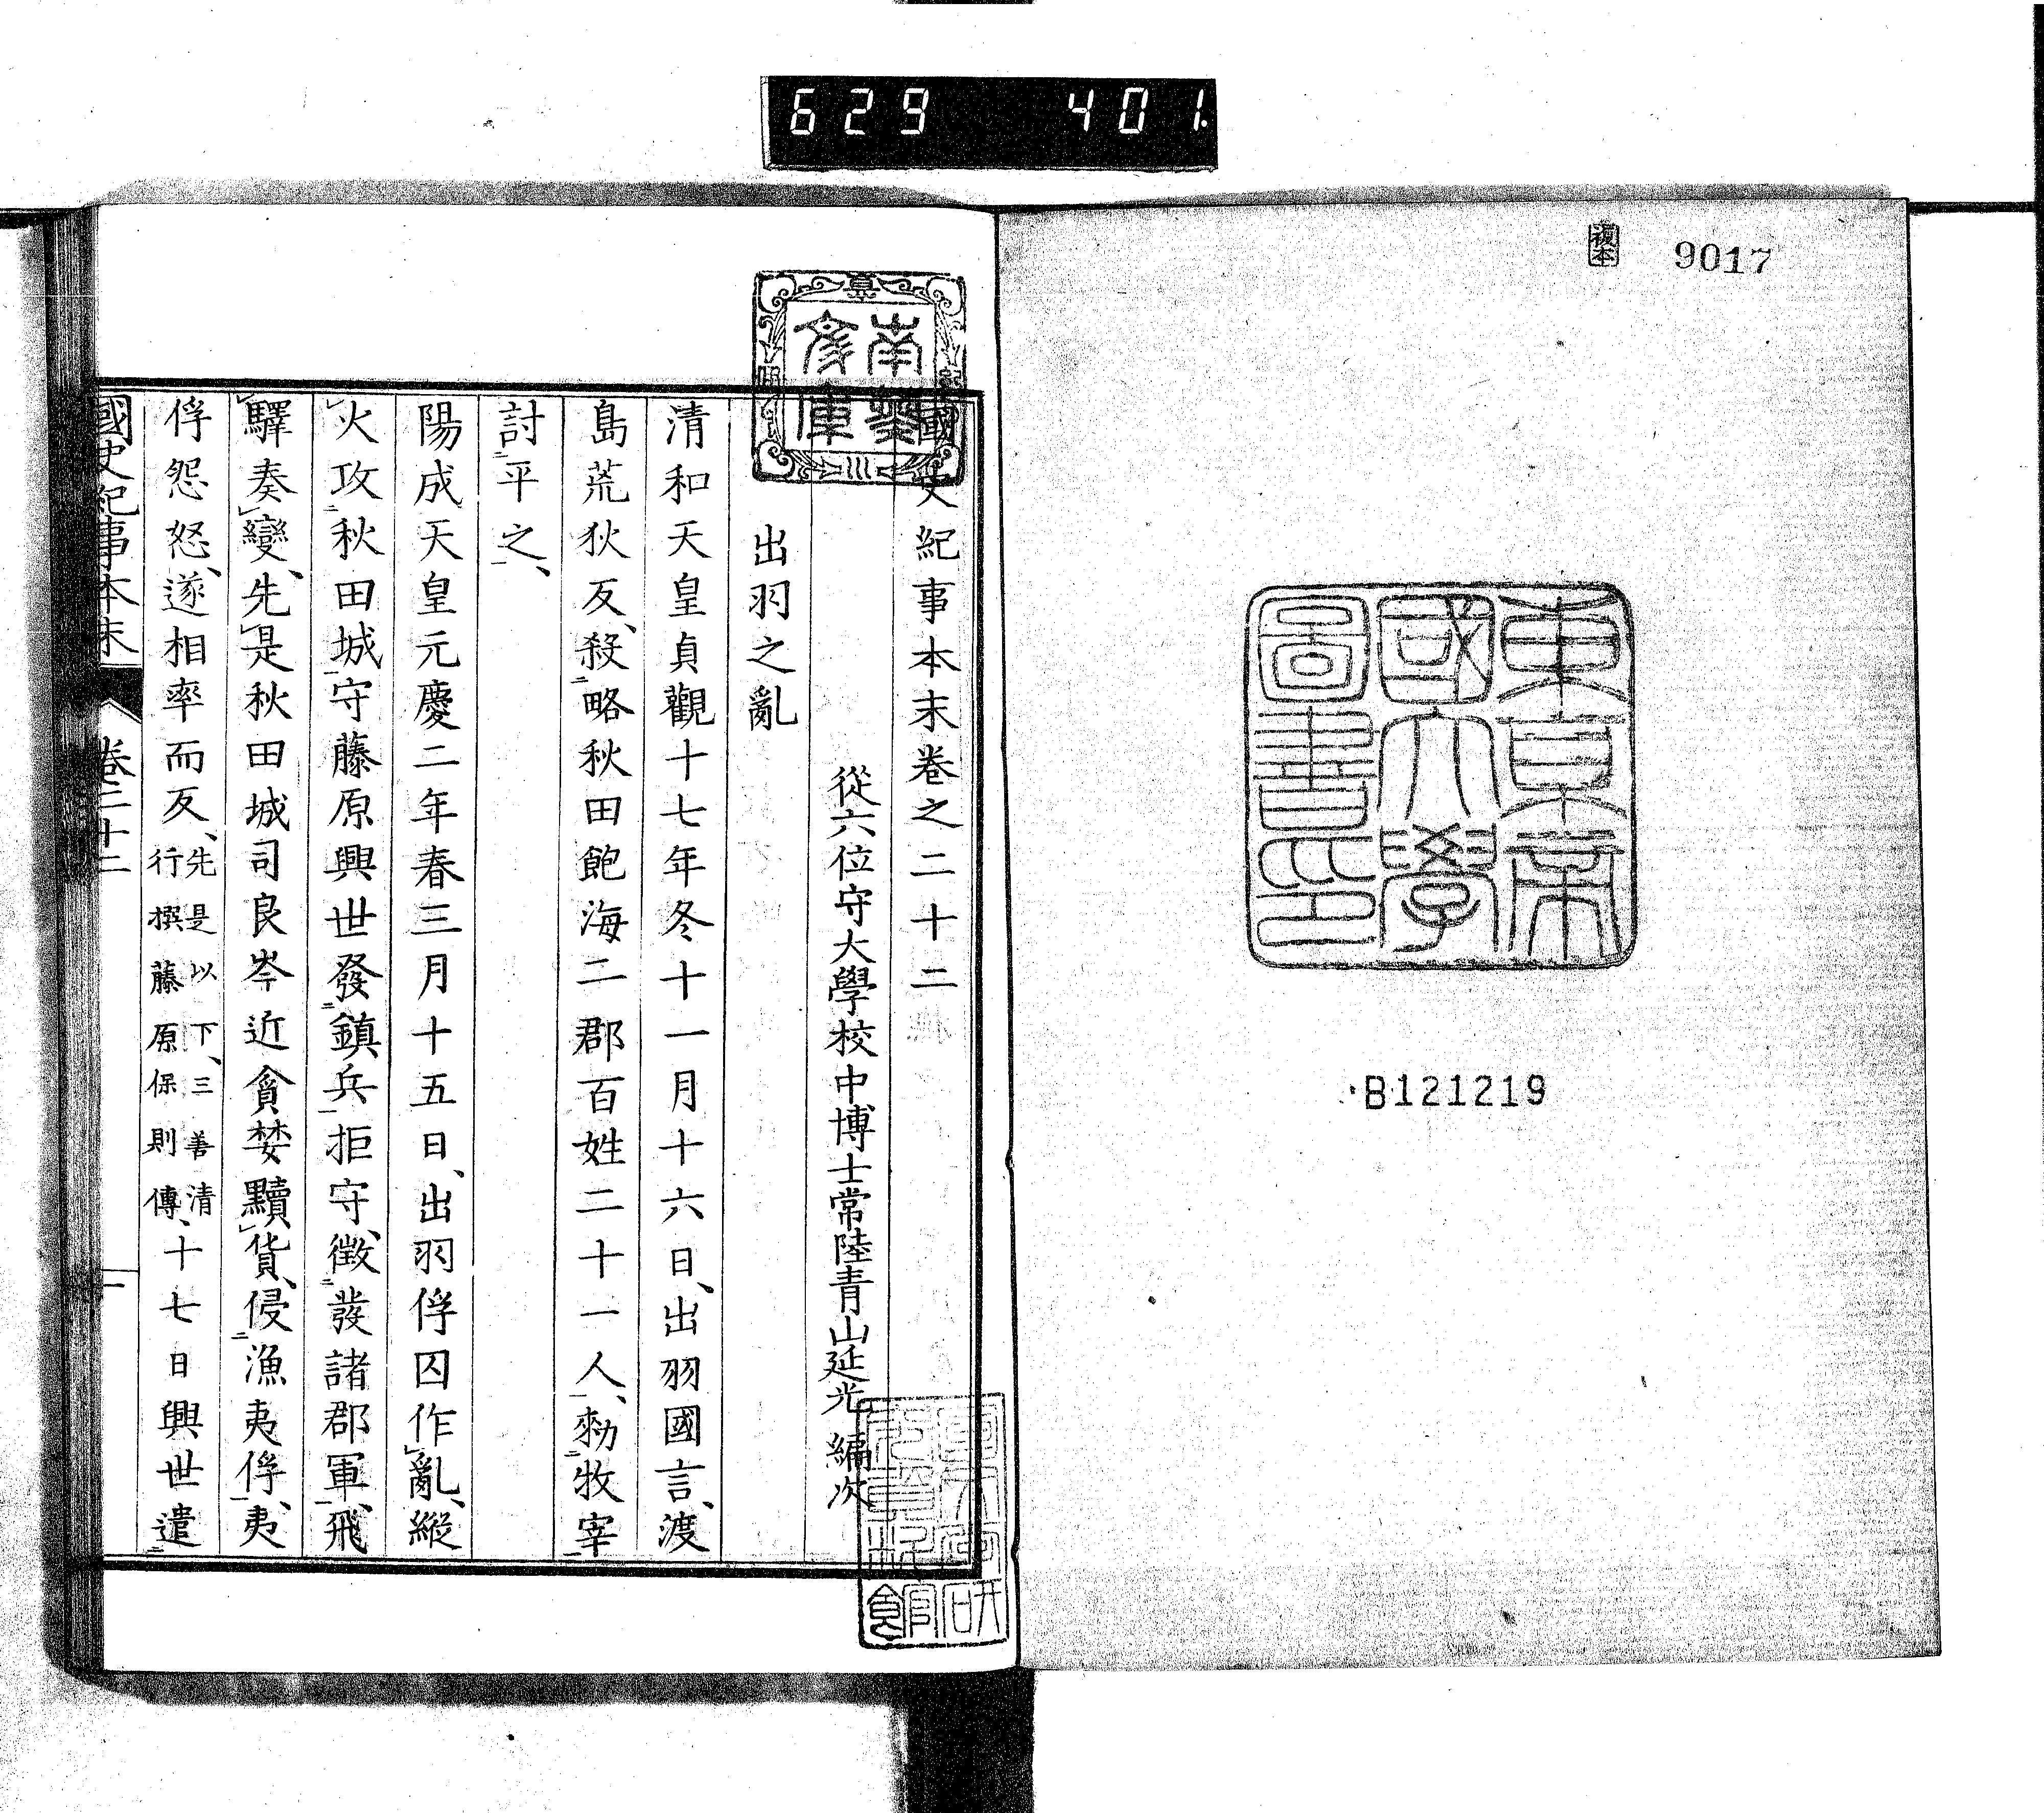 629 401
複本
9017
東京帝
國大學
圖書印
B121219
南葵
文庫
國史紀事本末卷之二十二
從六位守大學校中博士常陸青山延光編次
出羽之亂
清和天皇貞觀十七年冬十一月十六日、出羽國言、渡
島荒狄反、殺略秋田飽海二郡百姓二十一人、勅牧宰
討平之、
陽成天皇元慶二年春三月十五日、出羽俘囚作亂、縱
火攻秋田城、守藤原興世發鎮兵拒守、徵發諸郡軍、飛
驛奏變、先是秋田城司良岑近貪婪黷貨、侵漁夷俘、夷
俘怨怒、遂相率而反、先是以下、三善清行撰藤原保則傳、十七日興世遣
國史紀事本末 卷二十二 一